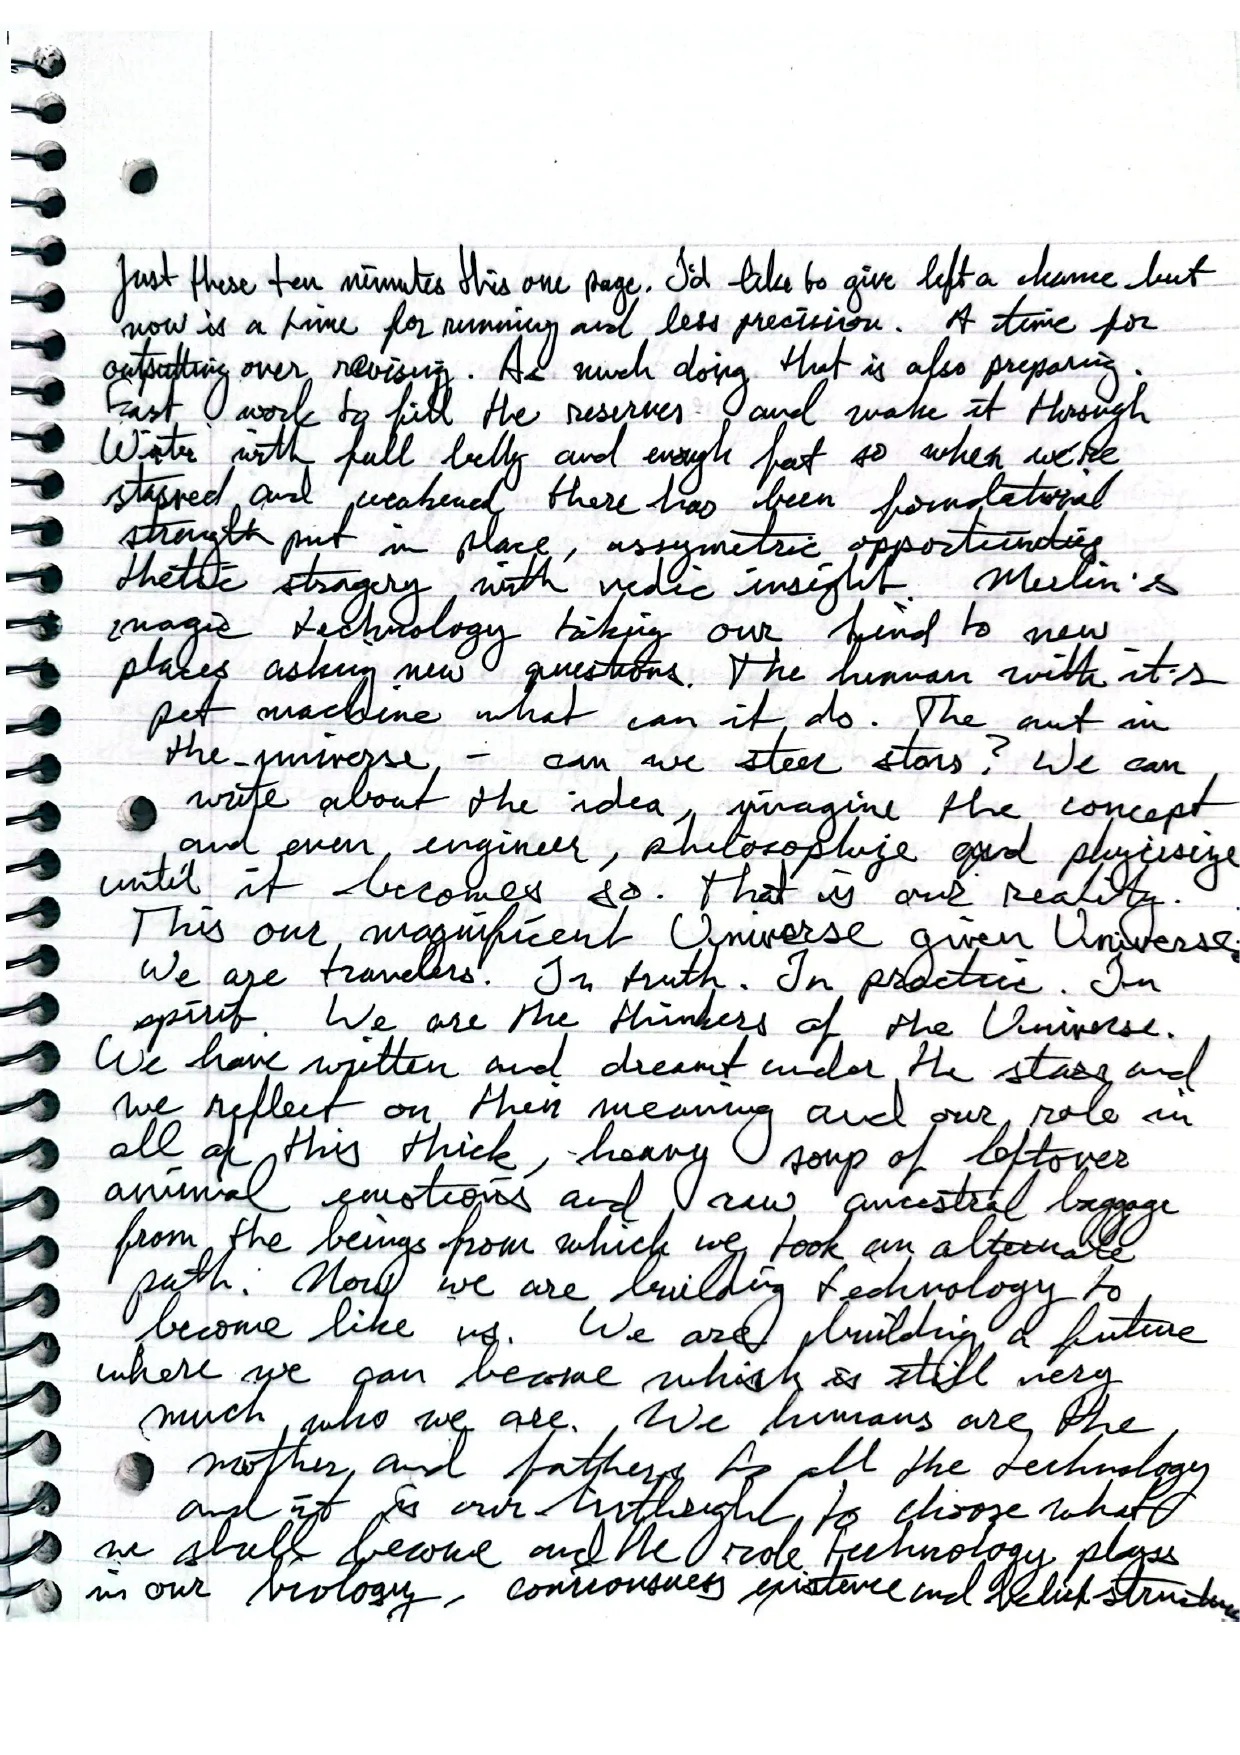 Just these ten minutes this one page. I'd like to give left a chance but
now is a time for running and less precision. A time for
outputting over revising. As much doing that is also preparing.
Fast work to fill the reserves and make it through
Winter with full belly and enough fat so when we're
starved and weakened there has been foundational
strength put in place, assymetric opportunities
thetic stragery with vedic insight. Merlin's
magic technology taking our kind to new
places asking new questions. The human with it's
pet machine what can it do. The ant in
the universe, - can we steer stars? We can
write about the idea, imagine the concept
and even engineer, philosophize and physicsize
until it becomes so. That is our reality.
This our magnificent Universe given Universe.
We are travelers. In truth. In practice. In
spirit. We are the thinkers of the Universe.
We have written and dreamt under the stars and
we reflect on their meaning and our role in
all of this thick, heavy soup of leftover
animal emotions and raw ancestral baggage
from the beings from which we took an alternate
path. Now we are building technology to
become like us. We are building a future
where we can become which is still very
much who we are. We humans are the
mother and fathers to all the technology
and it is our birthright to choose what
we shall become and the role technology plays
in our biology, consciousness existence and belief structure